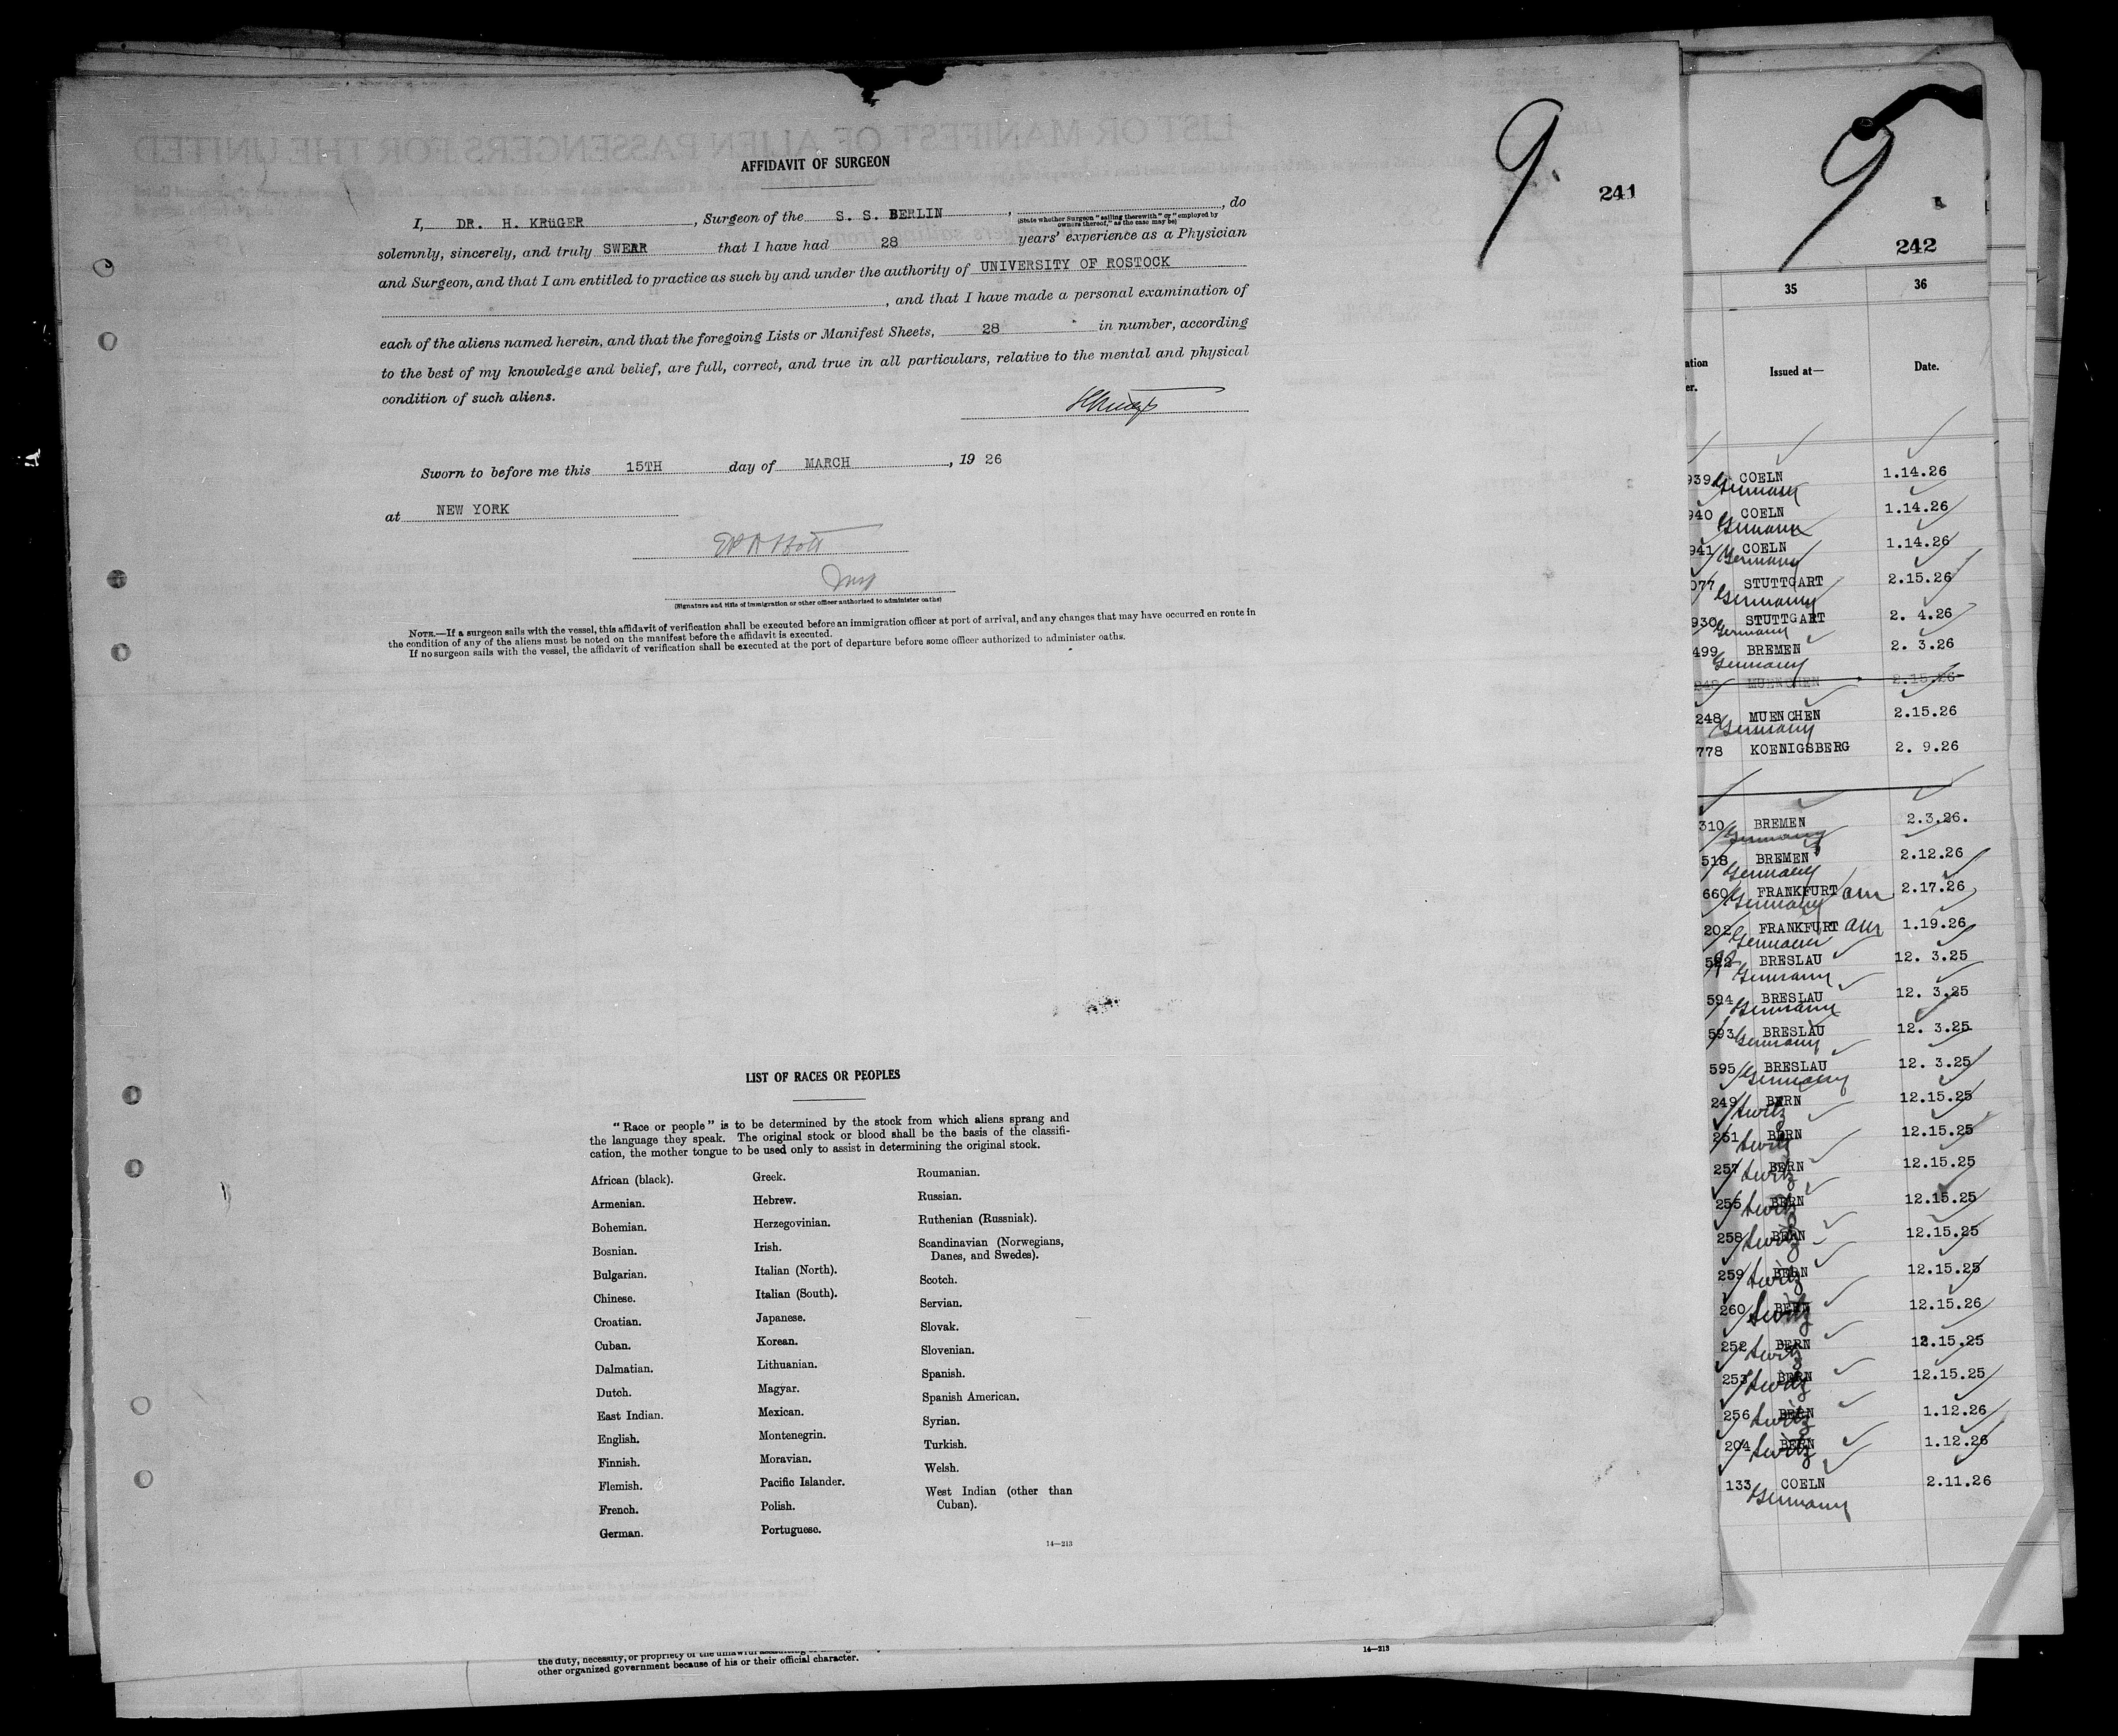 AFFIDAVIT OF SURGEON
9
241
I, DR. H. KRüGER, Surgeon of the S. S. BERLIN, , do
(State whether Surgeon "sailing therewith" or "employed by
owners thereof," as the case may be)
solemnly, sincerely, and truly SWEAR that I have had 28 years' experience as a Physician
and Surgeon, and that I am entitled to practice as such by and under the authority of UNIVERSITY OF ROSTOCK
, and that I have made a personal examination of
each of the aliens named herein, and that the foregoing Lists or Manifest Sheets, 28 in number, according
to the best of my knowledge and belief, are full, correct, and true in all particulars, relative to the mental and physical
condition of such aliens.
Sworn to before me this 15TH day of MARCH, 19 26
at NEW YORK
(Signature and title of immigration or other officer authorized to administer oaths)
NOTE.—If a surgeon sails with the vessel, this affidavit of verification shall be executed before an immigration officer at port of arrival, and any changes that may have occurred en route in
the condition of any of the aliens must be noted on the manifest before the affidavit is executed.
If no surgeon sails with the vessel, the affidavit of verification shall be executed at the port of departure before some officer authorized to administer oaths.
LIST OF RACES OR PEOPLES
"Race or people" is to be determined by the stock from which aliens sprang and
the language they speak. The original stock or blood shall be the basis of the classifi-
cation, the mother tongue to be used only to assist in determining the original stock.
African (black).
Armenian.
Bohemian.
Bosnian.
Bulgarian.
Chinese.
Croatian.
Cuban.
Dalmatian.
Dutch.
East Indian.
English.
Finnish.
Flemish.
French.
German.
Greek.
Hebrew.
Herzegovinian.
Irish.
Italian (North).
Italian (South).
Japanese.
Korean.
Lithuanian.
Magyar.
Mexican.
Montenegrin.
Moravian.
Pacific Islander.
Polish.
Portuguese.
Roumanian.
Russian.
Ruthenian (Russniak).
Scandinavian (Norwegians,
Danes, and Swedes).
Scotch.
Servian.
Slovak.
Slovenian.
Spanish.
Spanish American.
Syrian.
Turkish.
Welsh.
West Indian (other than
Cuban).
14—213
other organized government because of his or their official character.
14—213
9
242
35 36
Issued at— Date.
939 COELN Germany 1.14.26
940 COELN Germany 1.14.26
941 COELN Germany 1.14.26
077 STUTTGART Germany 2.15.26
930 STUTTGART Germany 2. 4.26
499 BREMEN Germany 2. 3.26
248 MUENCHEN 2.15.26
248 MUENCHEN Germany 2.15.26
778 KOENIGSBERG 2. 9.26
310 BREMEN Germany 2.3.26.
518 BREMEN Germany 2.12.26
660 FRANKFURT Germany 2.17.26
202 FRANKFURT Germany 1.19.26
BRESLAU Germany 12. 3.25
594 BRESLAU Germany 12. 3.25
593 BRESLAU Germany 12. 3.25
595 BRESLAU Germany 12. 3.25
249 BERN Switz 12.15.25
251 BERN Switz 12.15.25
257 BERN Switz 12.15.25
255 BERN Switz 12.15.25
258 BERN Switz 12.15.25
259 BERN Switz 12.15.25
260 BERN Switz 12.15.26
252 BERN Switz 12.15.25
253 BERN Switz 12.15.25
256 BERN Switz 1.12.26
204 BERN Switz 1.12.26
133 COELN Germany 2.11.26